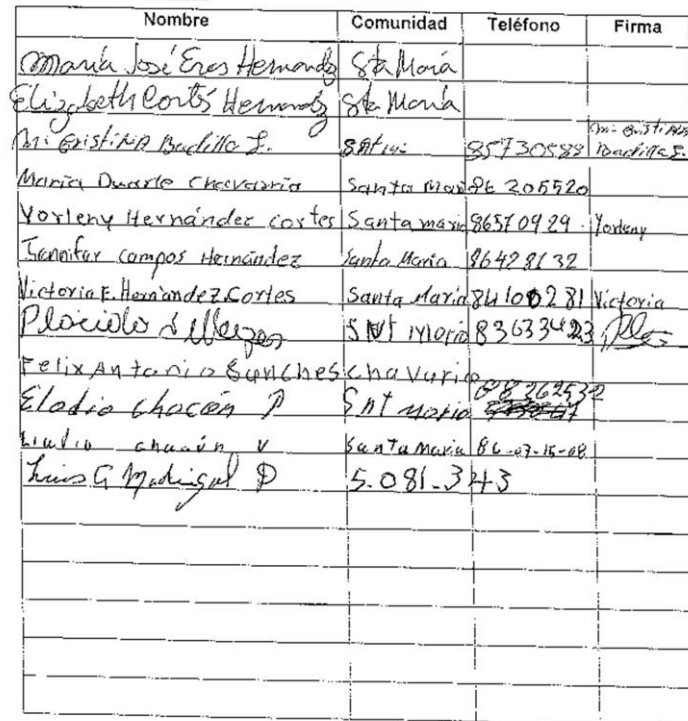 Nombre Comunidad Teléfono Firma
María José Eras Hernandz Sta María
Elizabeth Cortés Hernandz Sta María
Mi Cristina Badilla S. 85730588
Maria Duarte Chavarria Santa Mar 86 205520
Yorleny Hernández cortes Santa maria 86570929 Yorleny
Jannifar campos Hernández Santa Maria 86428132
Victoria E. Hernandez Cortes Santa Maria 84100281 Victoria
Placido SNT Maria 83633423
Felix Antonio Sanches chavaria
Eladio Chacón P SNT Maria 88262532
chacón V Santa Maria 86-07-15-08
Luis G Madrigal P 5.081-343